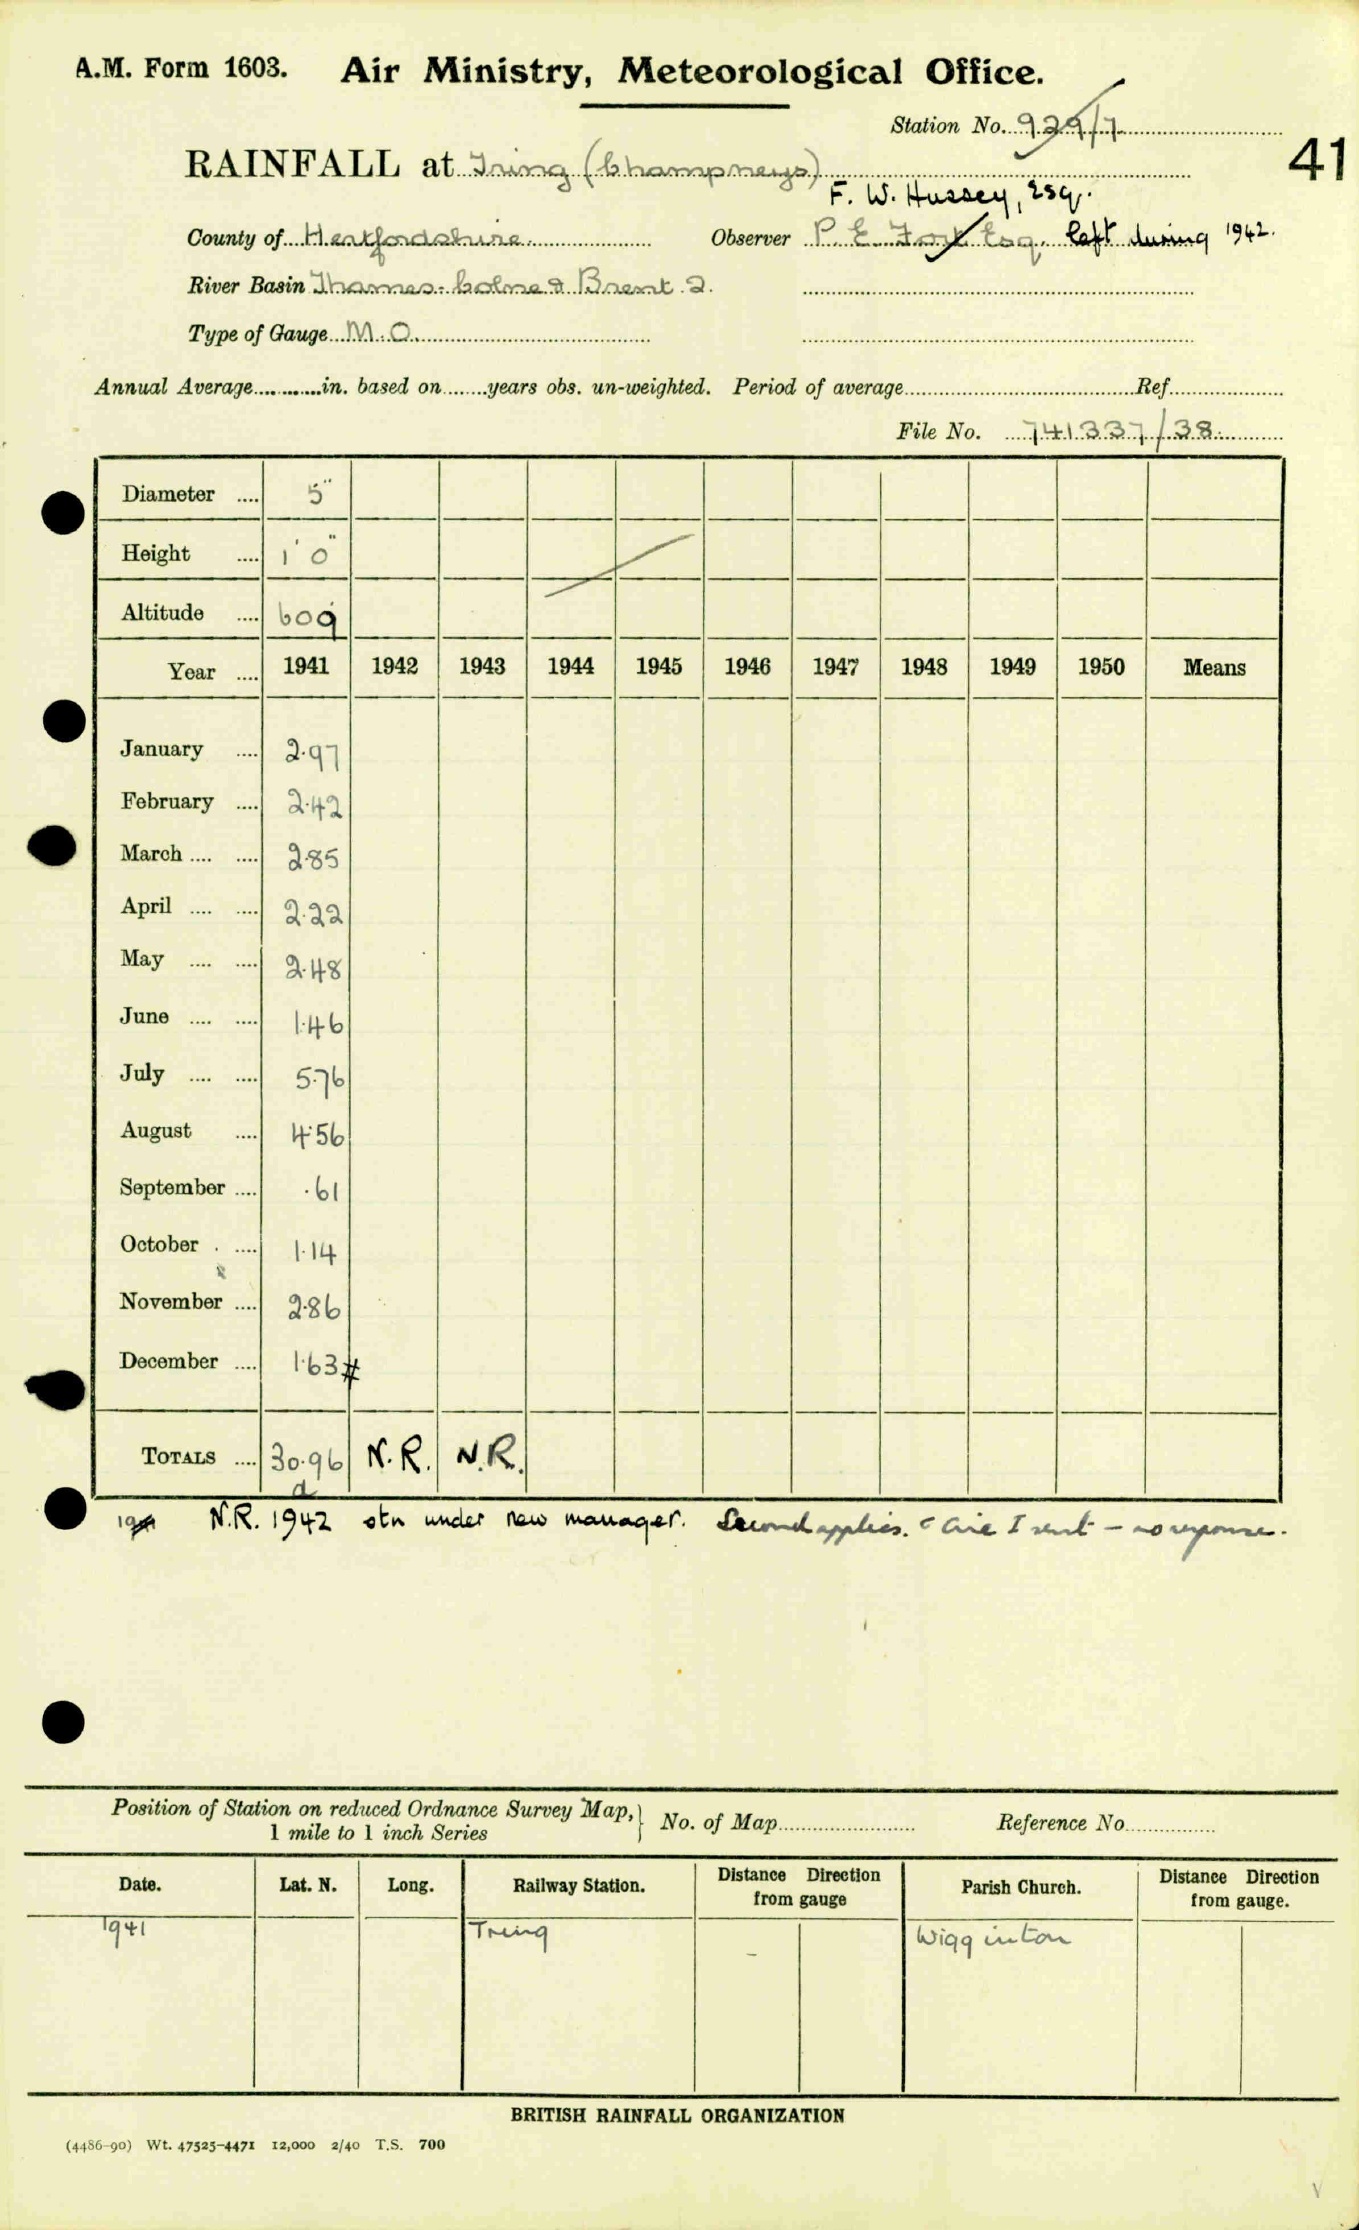 A.M. Form 1603. Air Ministry, Meteorological Office.
Station No. 929/7
41
RAINFALL at Tring (Champneys)
F. W. Hussey, Esq.
County of Hertfordshire. Observer P. E. Fort Esq. left during 1942.
River Basin Thames-Colne & Brent 2.
Type of Gauge M.O.
Annual Average............in. based on.......years obs. un-weighted. Period of average Ref.
File No. 741337/38.
Diameter .... 5"
Height .... 1' 0"
Altitude .... 609
Year .... 1941 1942 1943 1944 1945 1946 1947 1948 1949 1950 Means
January .... 2.97
February .... 2.42
March .... .... 2.85
April .... .... 2.22
May .... .... 2.48
June .... .... 1.46
July .... .... 5.76
August .... 4.56
September .... .61
October . .... 1.14
November .... 2.86
December .... 1.63#
TOTALS .... 30.96 N.R. N.R.
d
N.R. 1942 stn under new manager. Second applies. I sent - no response.
Position of Station on reduced Ordnance Survey Map, } No. of Map Reference No.
1 mile to 1 inch Series
Date. Lat. N. Long. Railway Station. Distance Direction from gauge Parish Church. Distance Direction from gauge.
1941 Tring - Wigginton
BRITISH RAINFALL ORGANIZATION
(4486-90) Wt. 47525-4471 12,000 2/40 T.S. 700